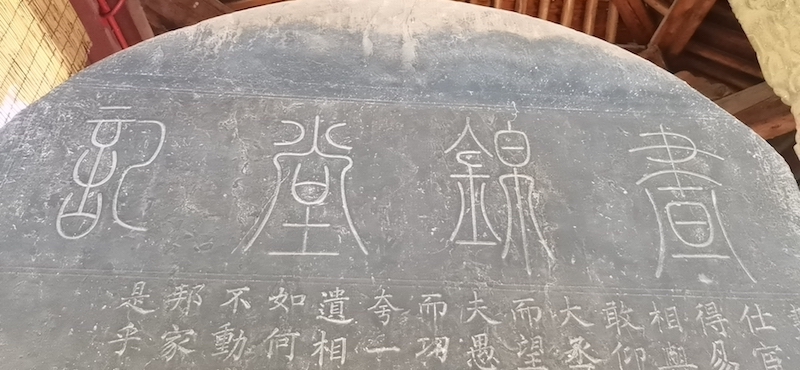 晝錦堂記
仕宦
得易
相與
敢仰
大丞
而望
夫愚
而功
夸一
遺相
如何
不動
邦家
是乎